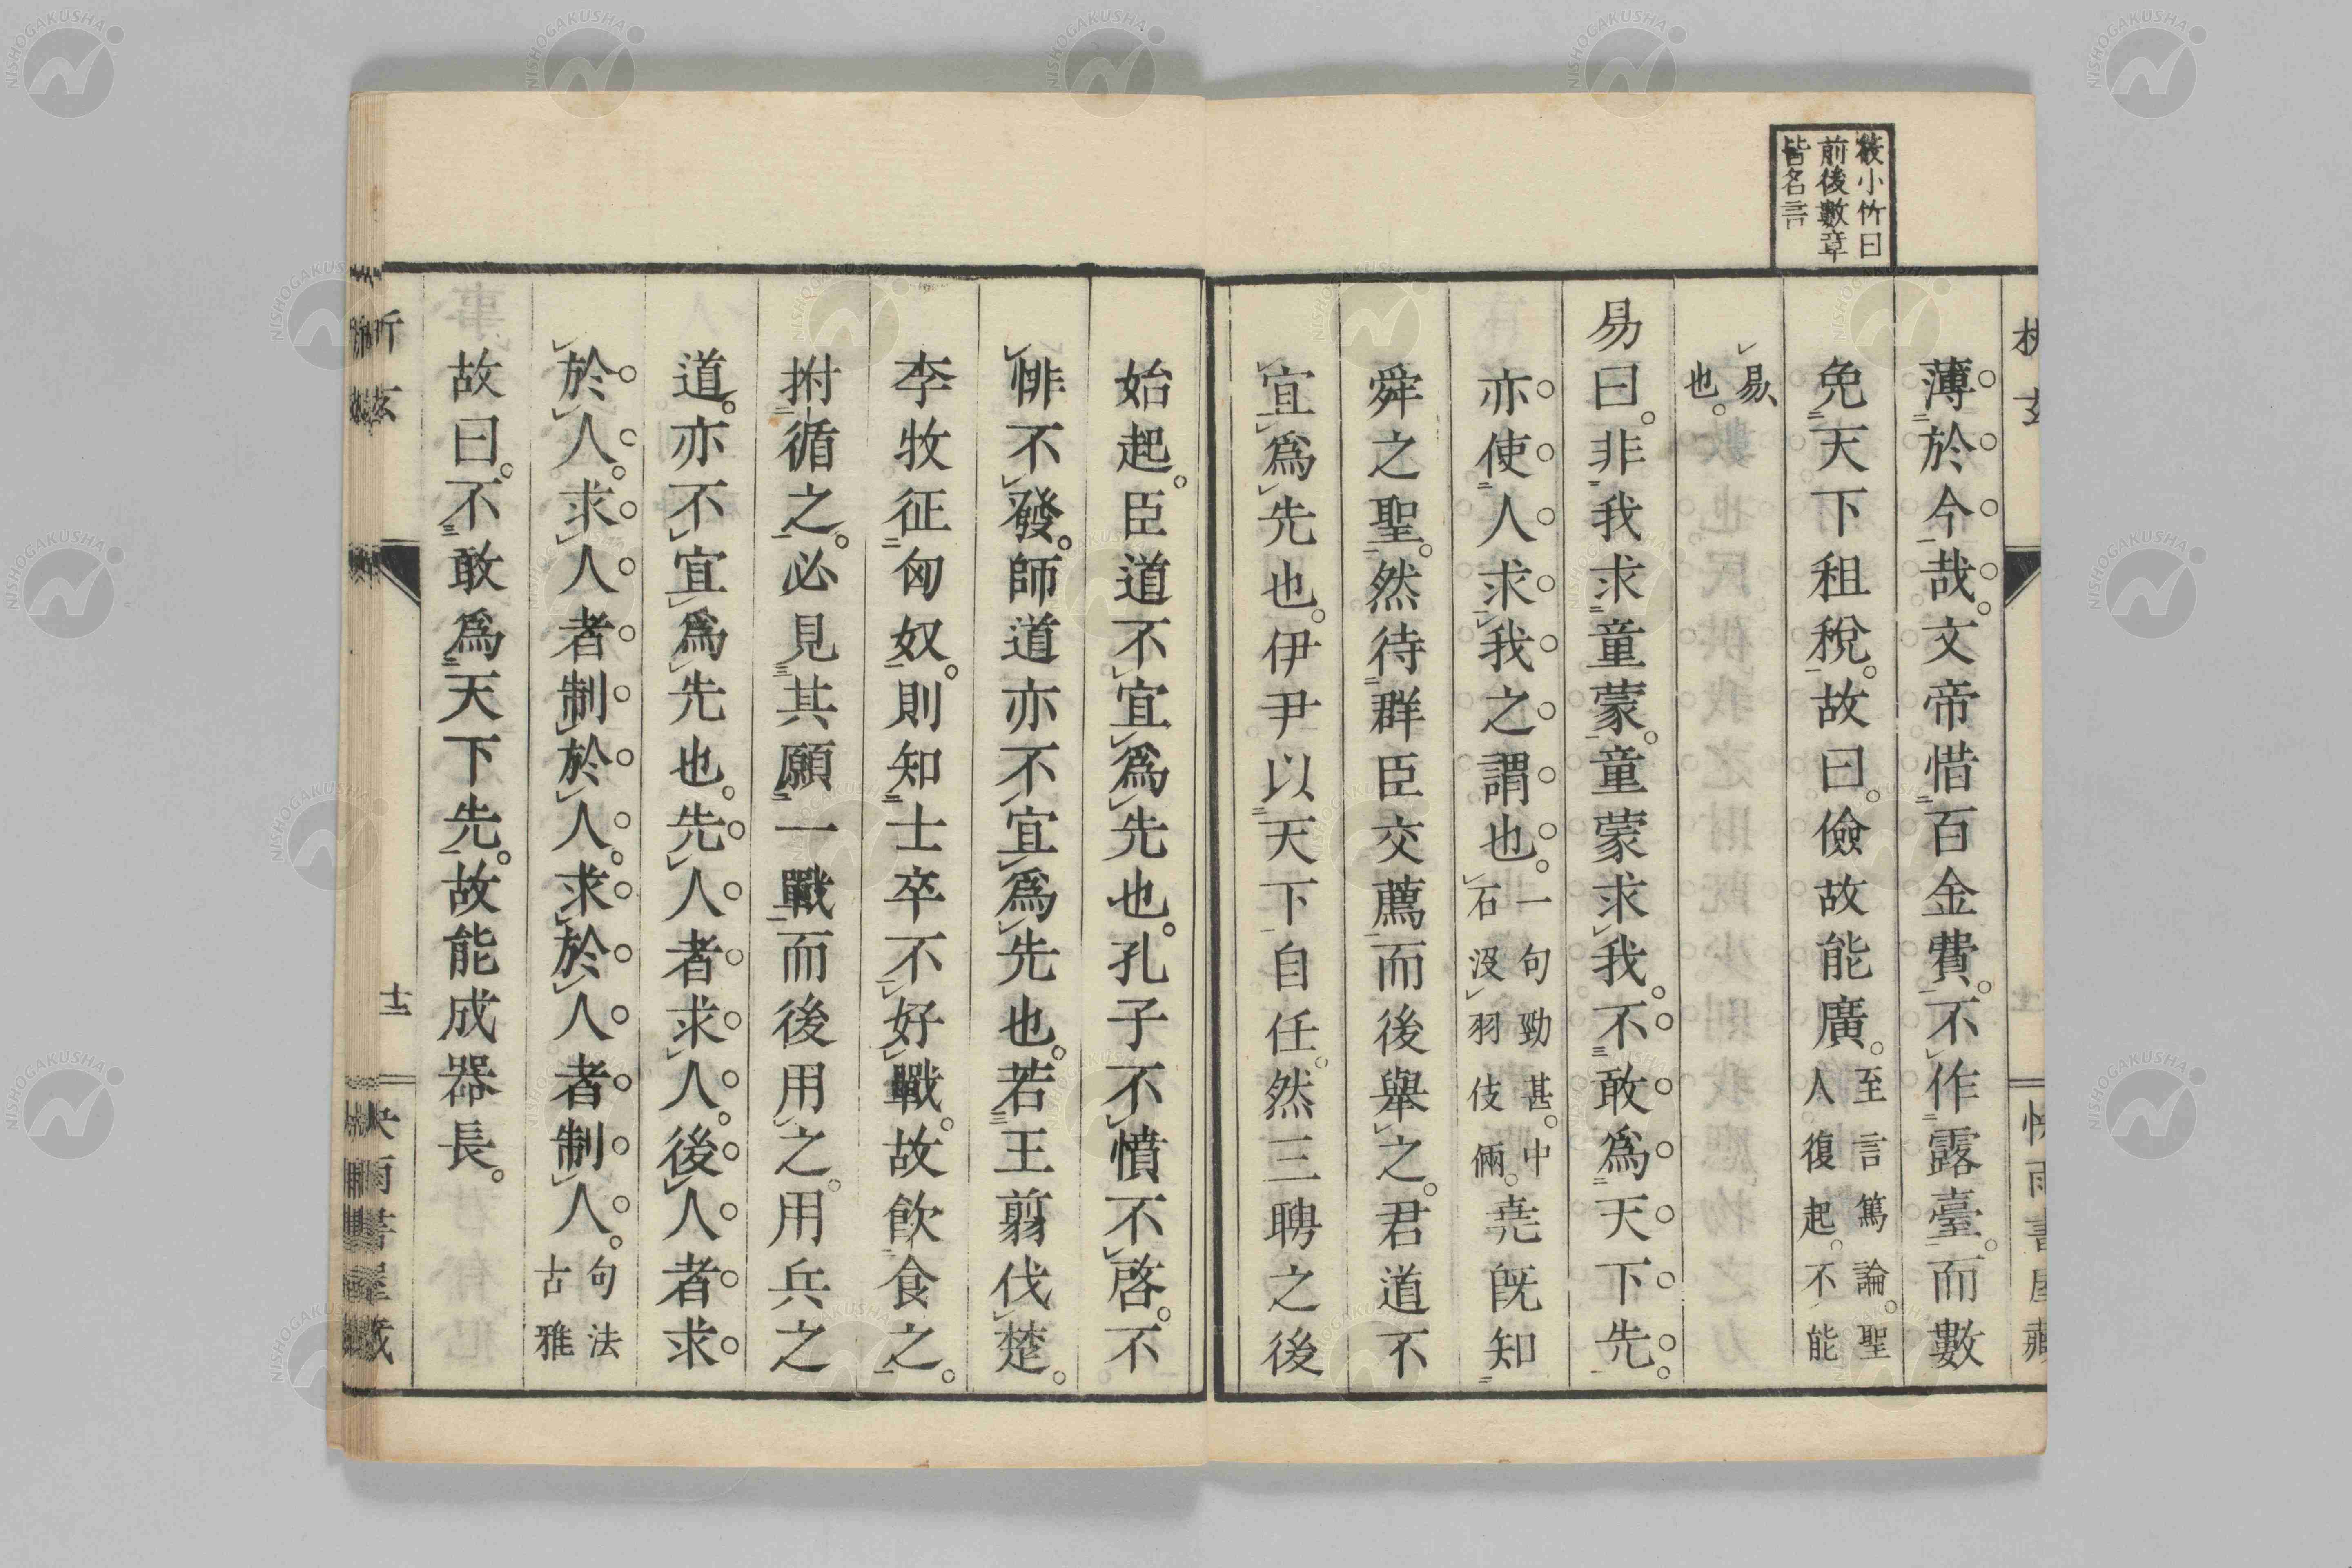 筱小竹曰
前後數章
皆名言
薄於今哉。文帝惜百金費。不作露臺。而數
免天下租稅。故曰。儉故能廣。至言篤論。聖人復起。不能
易也。
易曰。非我求童蒙。童蒙求我。不敢爲天下先。
亦使人求我之謂也。一句勁甚。中石沒羽伎倆。堯既知
舜之聖。然待群臣交薦而後舉之。君道不
宜爲先也。伊尹以天下自任。然三聘之後
始起。臣道不宜爲先也。孔子不憤不啓。不
悱不發。師道亦不宜爲先也。若王翦伐楚。
李牧征匈奴。則知士卒不好戰。故飮食之。
拊循之。必見其願一戰而後用之。用兵之
道。亦不宜爲先也。先人者求人。後人者求
於人。求人者制於人。求於人者制人。句法古雅
故曰。不敢爲天下先。故能成器長。
析玄
十二
快雨書屋藏
NISHOGAKUSHA